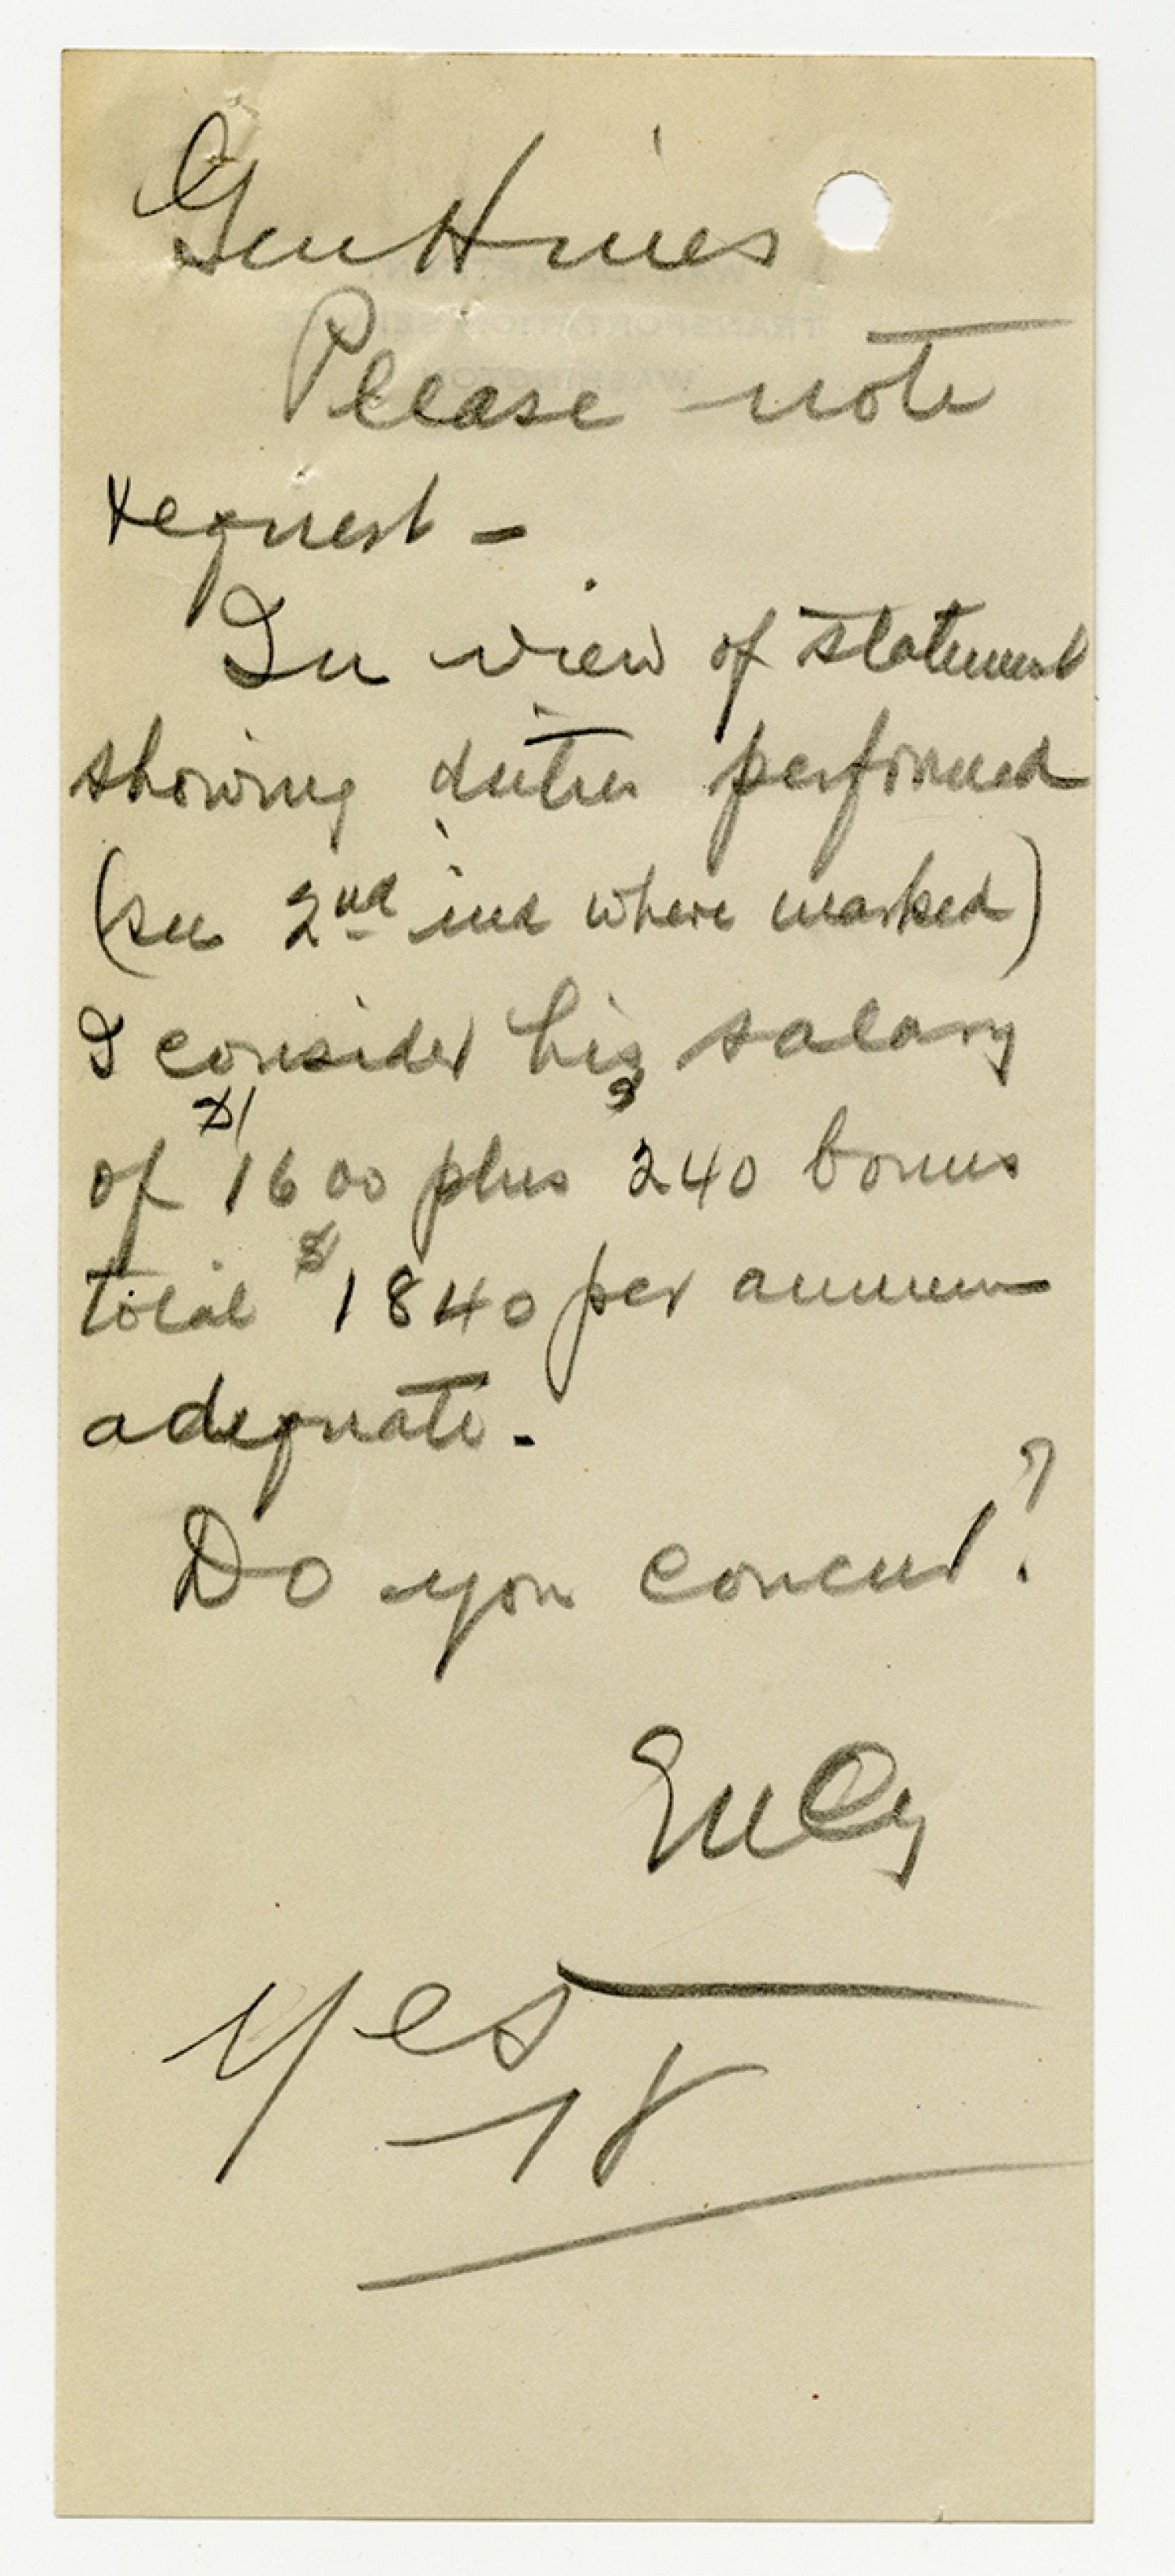 Gen Hines
Please note
request -
In view of statement
showing duties performed
(see 2nd ind where marked)
I consider his salary
of $1600 plus $240 bonus
total $1840 per annum
adequate -
Do you concur?
yes